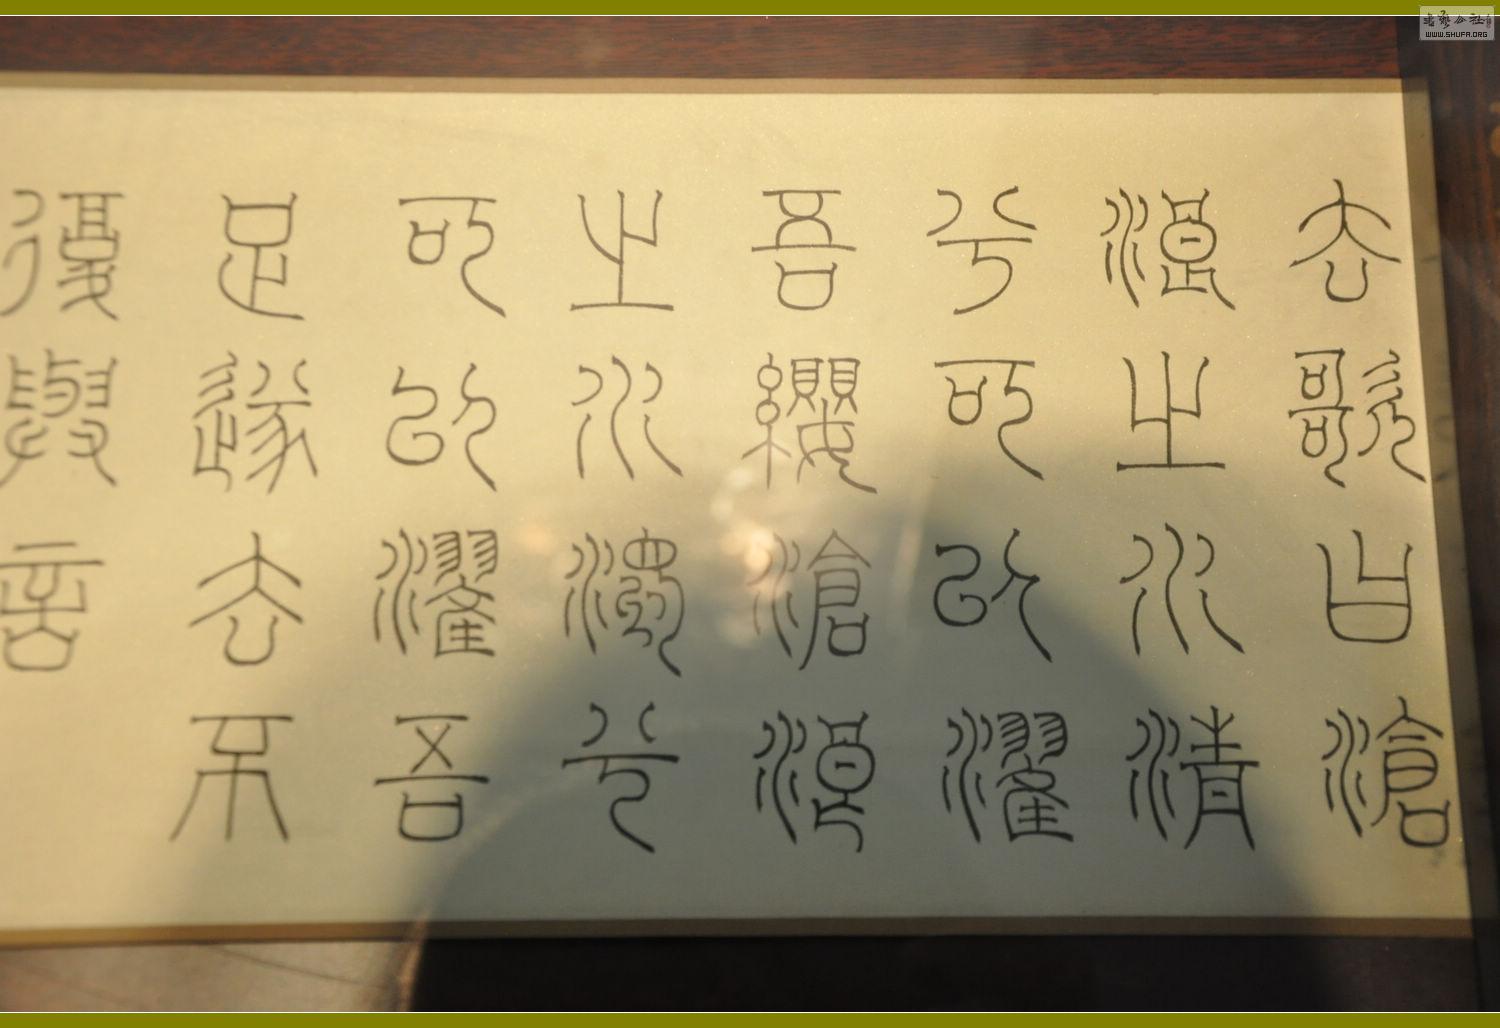 去歌曰滄
浪之水清
兮可以濯
吾纓滄浪
之水濁兮
可以濯吾
足遂去不
復與言
WWW.SHUFA.ORG